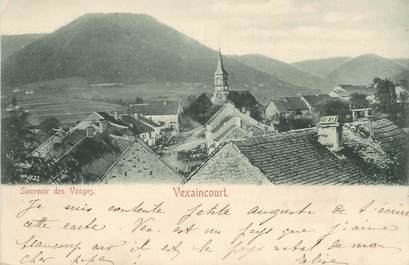 1922
Souvenir des Vosges. Vexaincourt.
Je suis contente petite Auguste de t'écrire
cette carte Vex. est un pays que j'aime
beaucoup car il est le pays natal de mon
cher papa